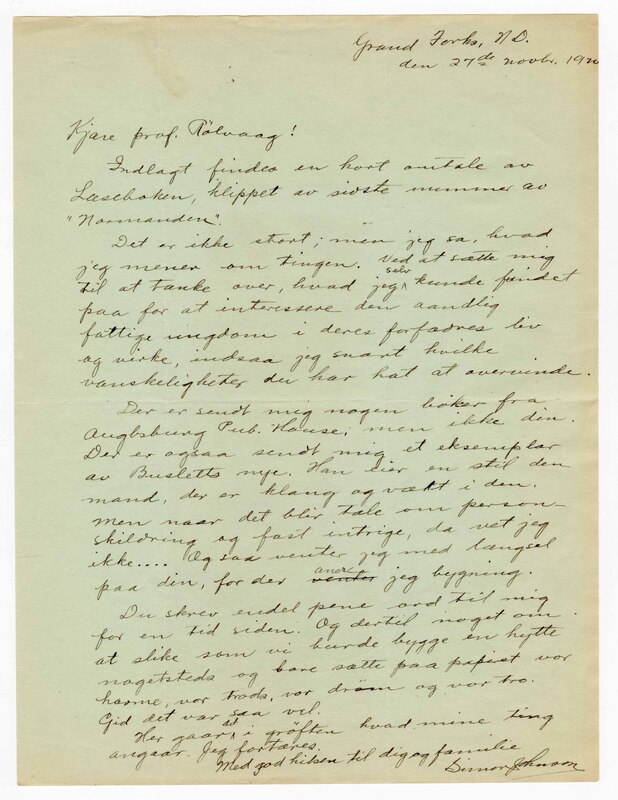 Grand Forks, N.D.
den 27de novbr. 1920
Kjære prof. Rölvaag!
Indlagt findes en kort omtale av
Læseboken, klippet av sidste nummer av
"Normanden".
Det er ikke stort; men jeg sa, hvad
jeg mener om tingen. Ved at sætte mig
til at tænke over, hvad jeg selv kunde fundet
paa for at interessere den aandlig
fattige ungdom i deres forfædres liv
og virke, indsaa jeg snart hvilke
vanskeligheter du har hat at overvinde.
Der er sendt mig nogen böker fra
Augbsburg Pub. House; men ikke din.
Der er ogsaa sendt mig et eksemplar
av Busletts nye. Han eier en stil den
mand, der er klang og vækt i den.
Men naar det blir tale om person-
skildring og fast intrige, da vet jeg
ikke.... Og saa venter jeg med længsel
paa din, for der venter aner jeg bygning.
Du skrev endel pene ord til mig
for en tid siden. Og dertil noget om
at slike som vi burde bygge en hytte
nogetsteds og bare sætte paa papiret vor
harme, vor trods, vor dröm og vor tro.
Gid det var saa vel.
Her gaar alt i gröften hvad mine ting
angaar. Jeg fortæres.
Med god hilsen til dig og familie
Simon Johnson